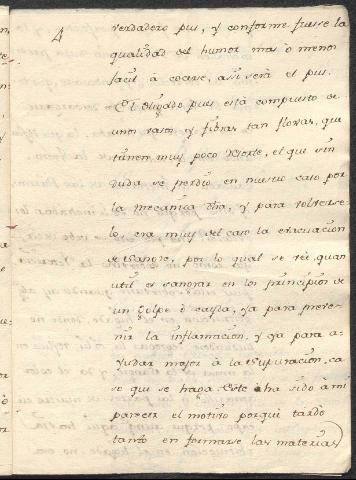 4
verdadero pus, y conforme fuesse la
qualidad del humor mas ò menos
facil à cocerse, assi serà el pus.
El Higado pues està compuesto de
unos vasos, y fibras tan floxas, que
tienen muy poco resorte, el que sin
duda se perdiò en nuestro caso por
la mecanica dha, y para volverse-
le, era muy del caso la evacuacion
de sangre, por lo qual se vèe quan
util es sangrar en los principios de
un golpe ò caìda, ya para preve-
nir la inflamacion, y ya para a-
yudar mejor à la supuracion, ca-
so que se haga. Este ha sido à mi
parecer el motivo porque tardò
tanto en formarse las materias